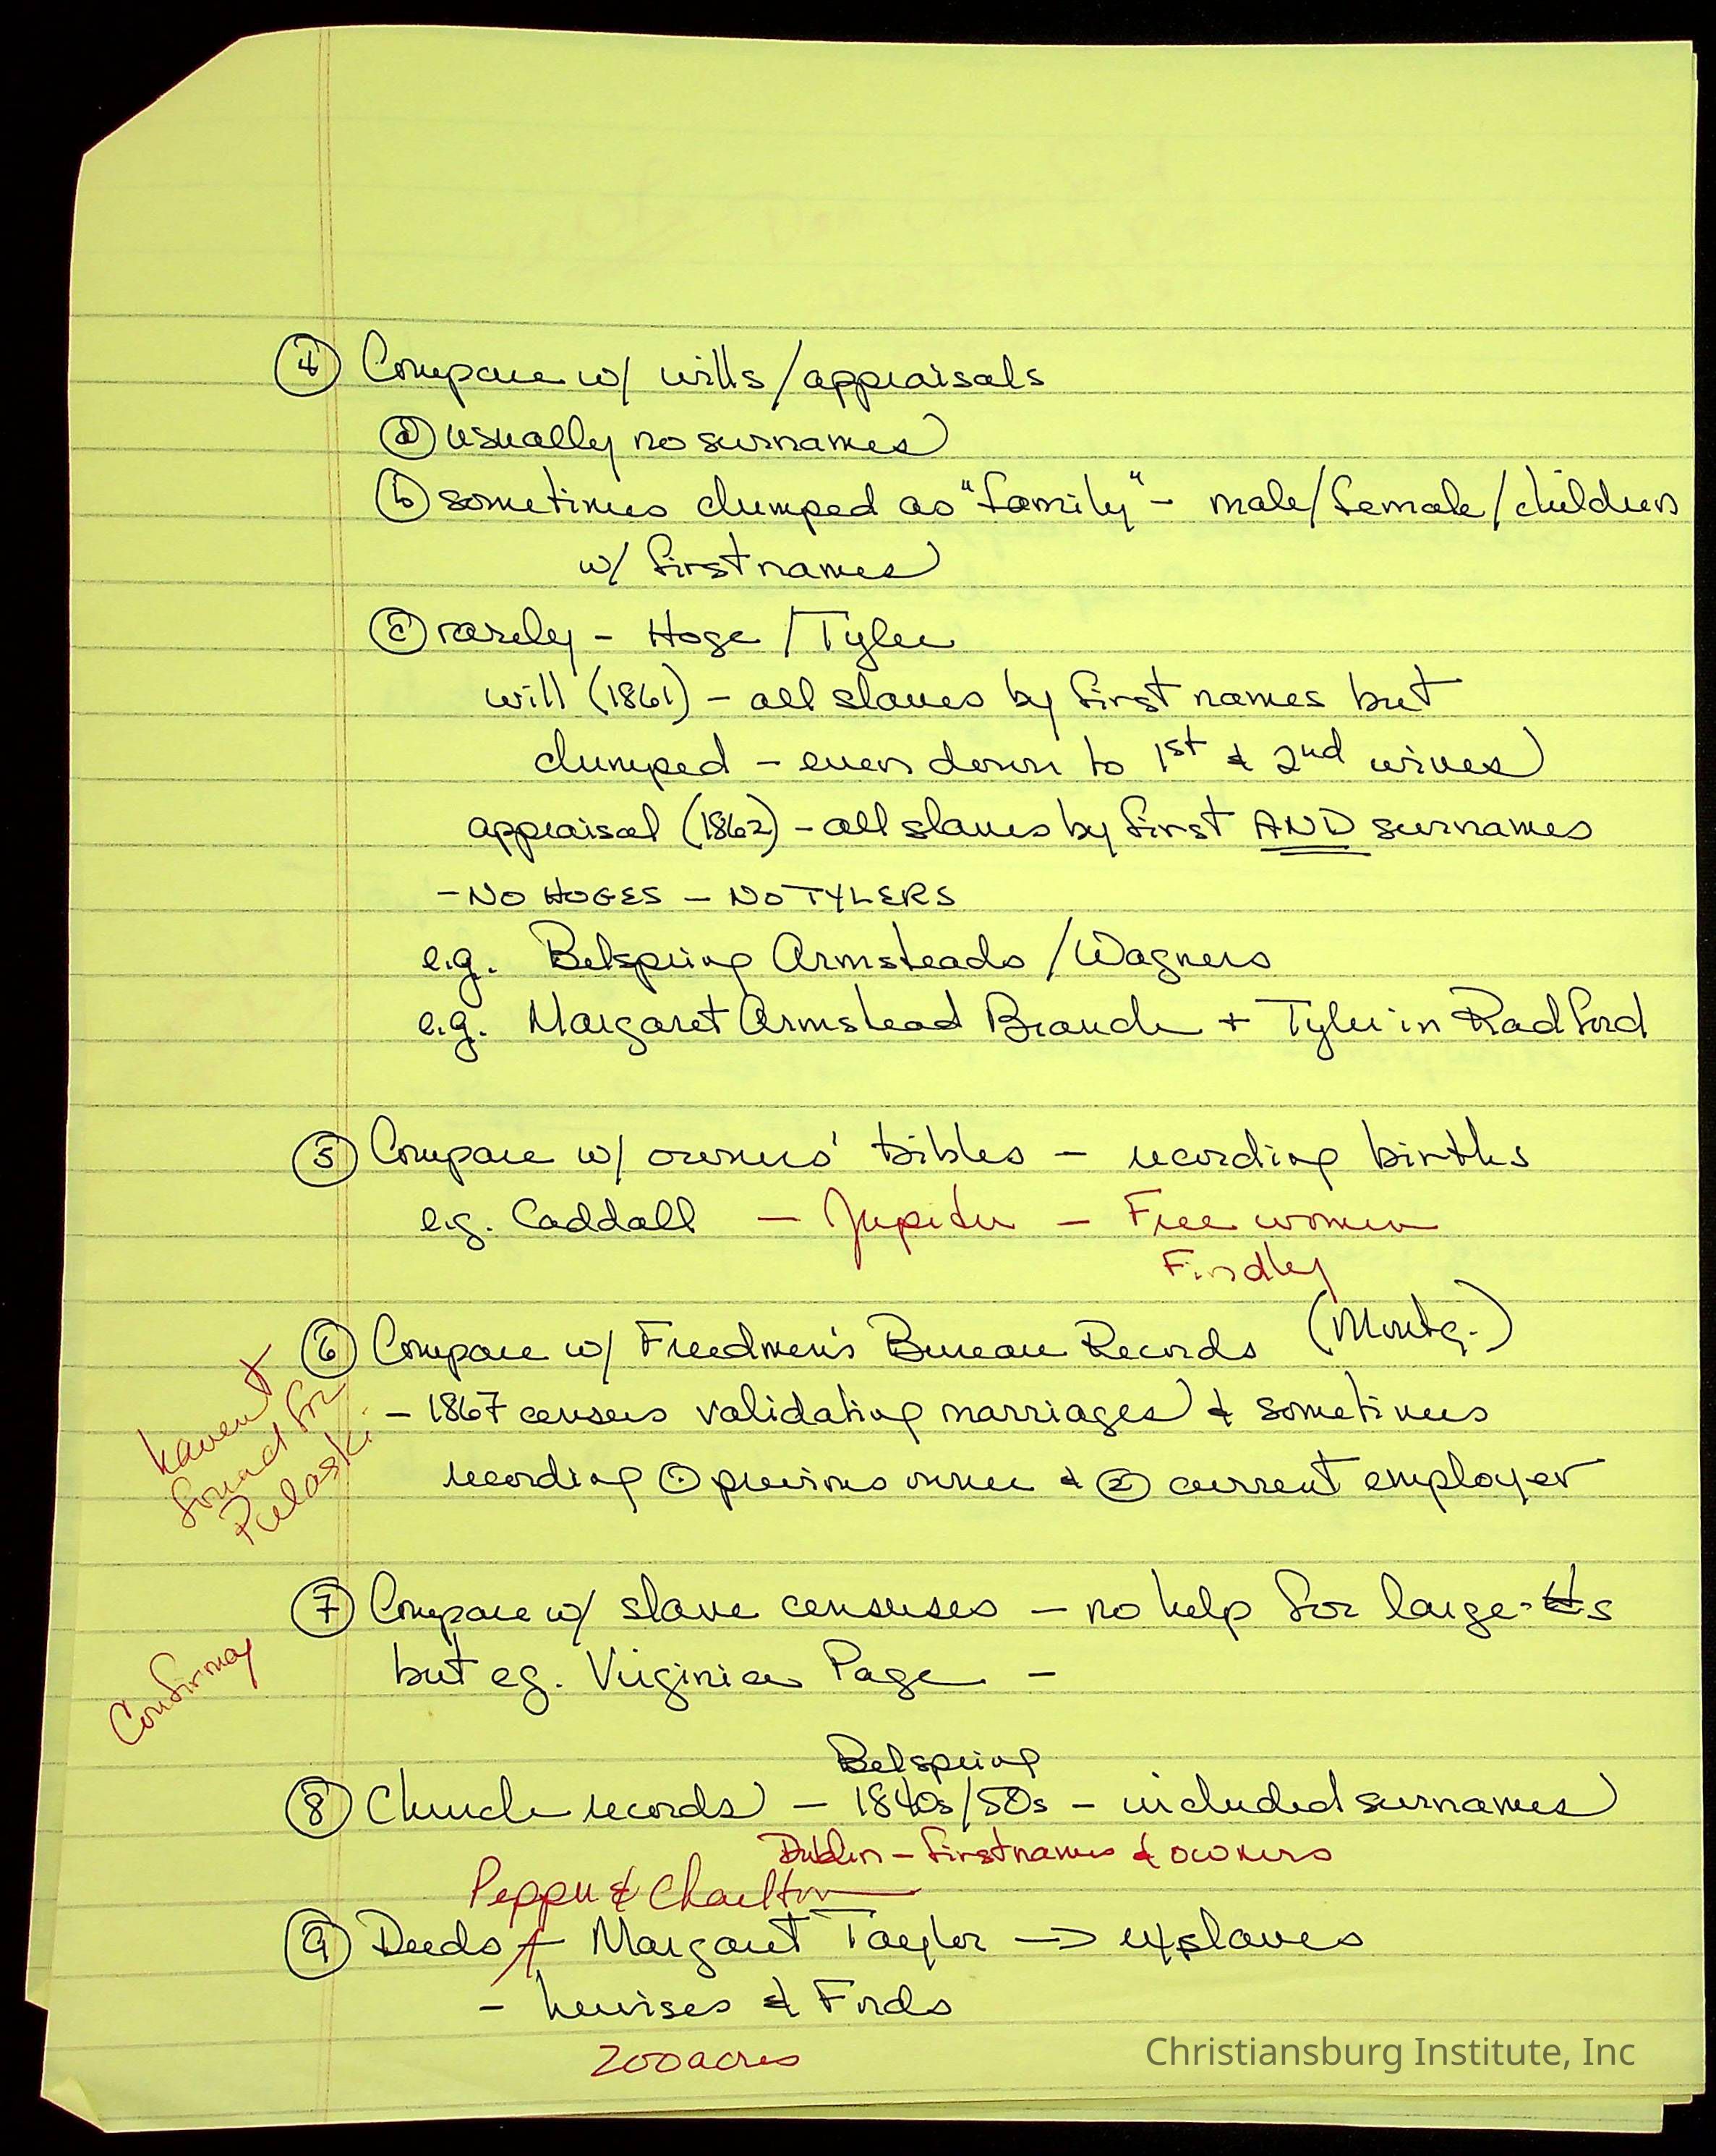 ④ Compare w/ wills/appraisals
ⓐ usually no surnames
ⓑ sometimes clumped as "family" - male/female/children
w/ first names
ⓒ rarely - Hoge / Tyler
will (1861) - all slaves by first names but
clumped - even down to 1st & 2nd wives
appraisal (1862) - all slaves by first AND surnames
- NO HOGES - NO TYLERS
e.g. Belspring Armsteads / Wagners
e.g. Margaret Armstead Branch + Tyler in Radford
⑤ Compare w/ owners' bibles - recording births
e.g. Caddall - Jupiter - Free women
Findley
⑥ Compare w/ Freedmen's Bureau Records (Montg.)
haven't
found for
Pulaski
- 1867 census validating marriages & sometimes
recording ① previous owner & ② current employer
⑦ Compare w/ slave censuses - no help for large #s
but eg. Virginia Page -
Confirmay
Belspring
⑧ Church records - 1840s/50s - included surnames
Dublin - first names & owners
Pepper & Charlton
⑨ Deeds - Margaret Taylor → exslaves
- hewises & Fords
200 acres
Christiansburg Institute, Inc